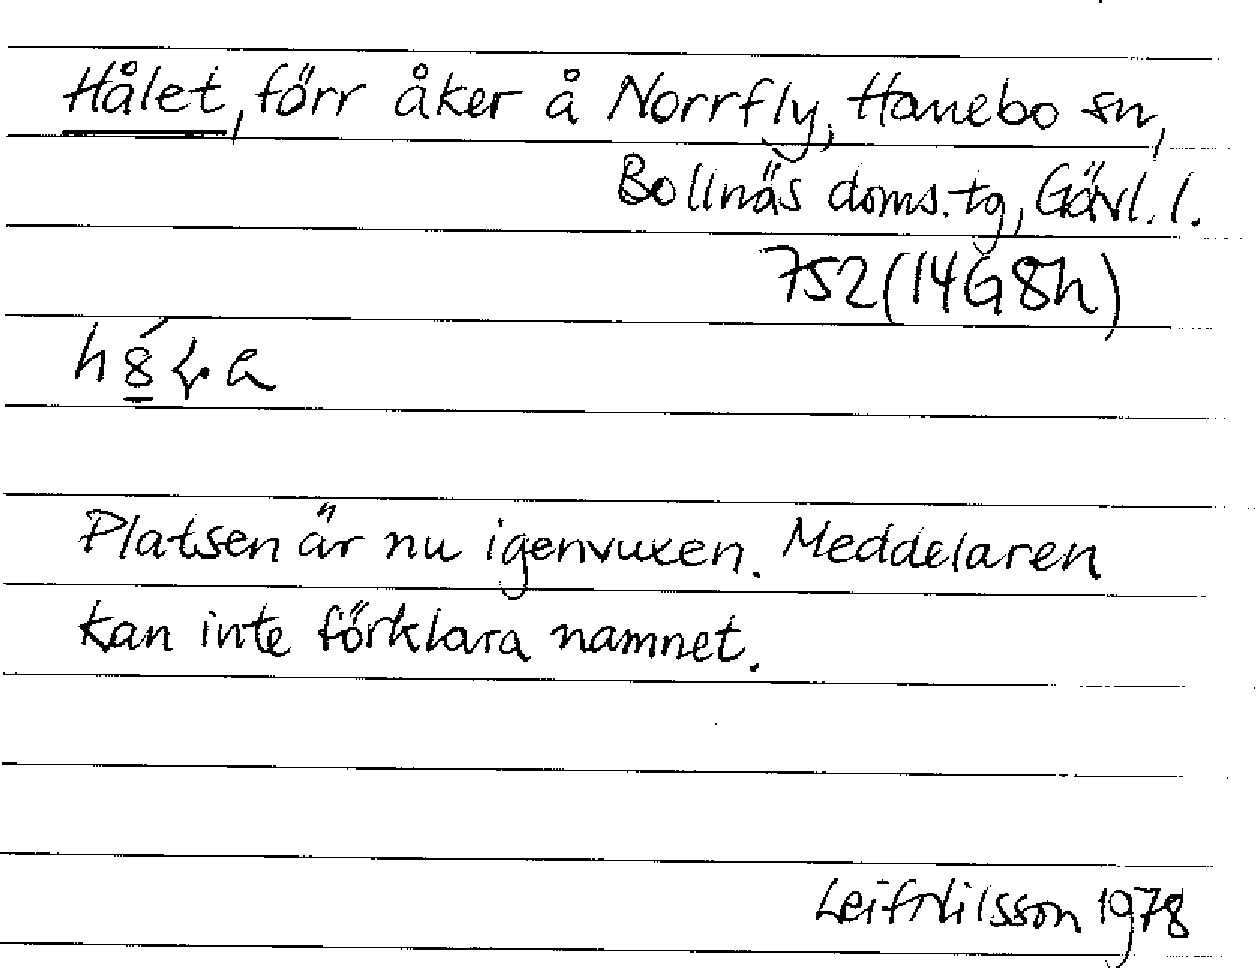 Hålet, förr åker å Norrfly, Hanebo sn,
Bollnäs doms.tg, Gävl. l.
752 (14G8h)
Platsen är nu igenvuxen. Meddelaren
kan inte förklara namnet.
Leif Nilsson 1978